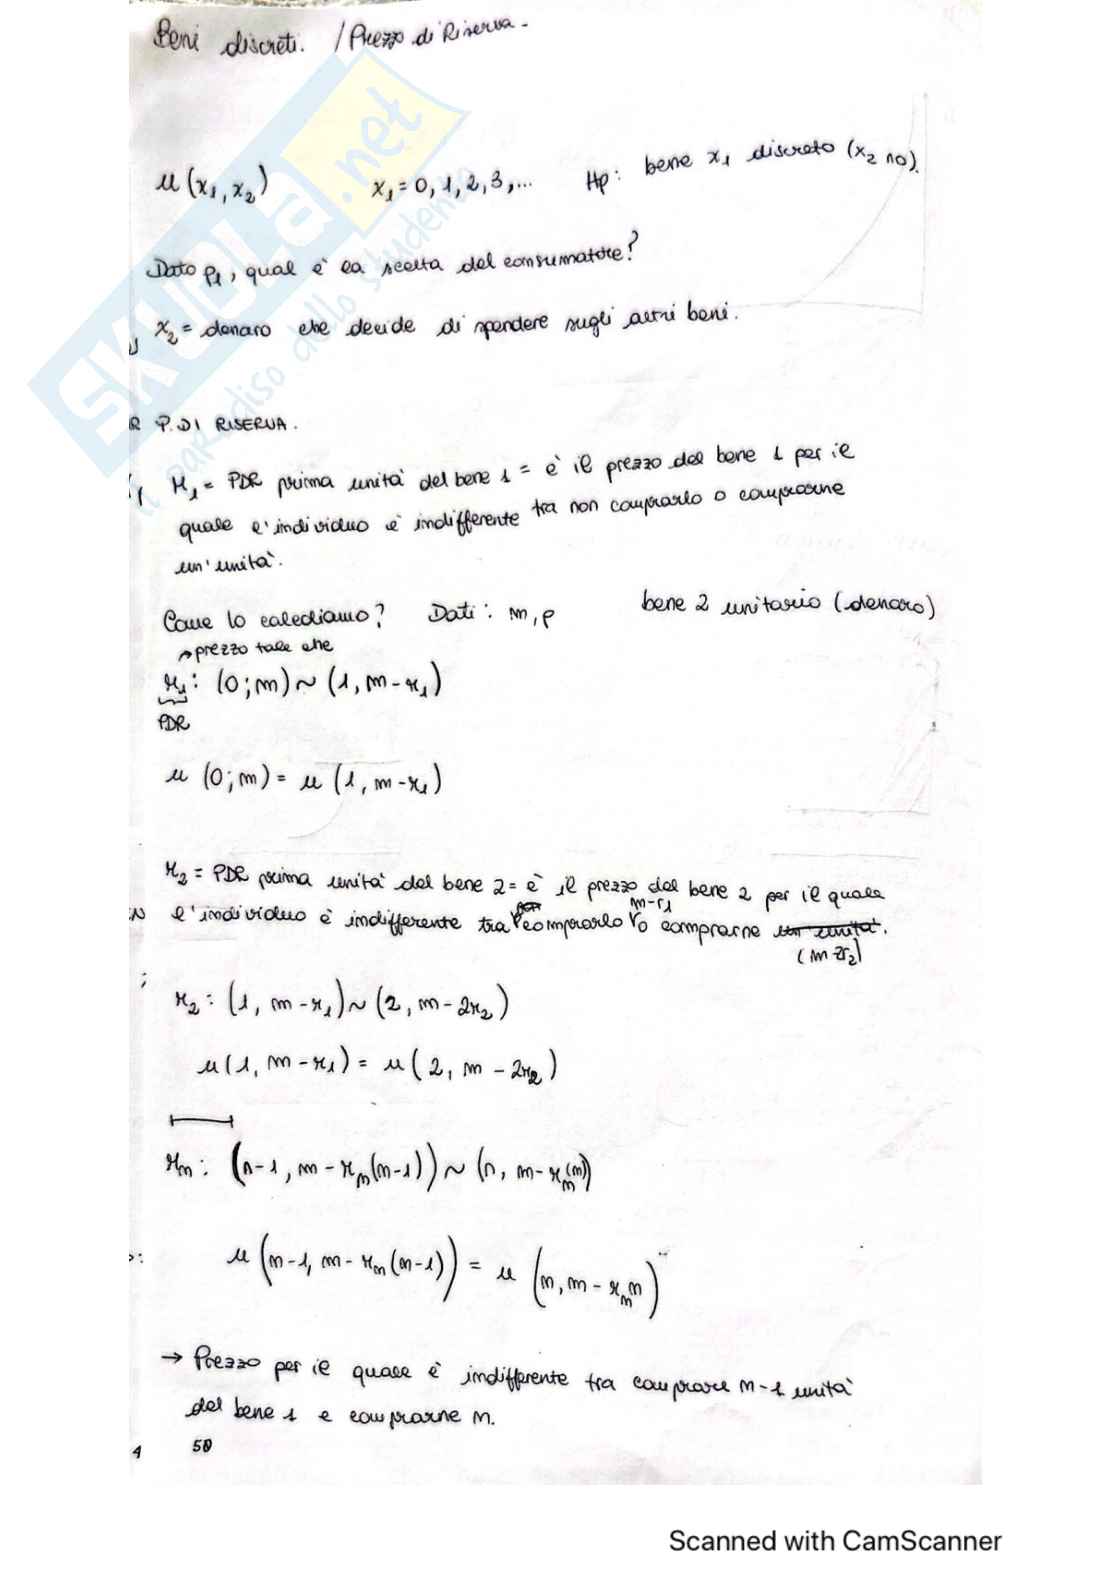 Beni discreti. / Prezzo di Riserva -
u (x₁, x₂) x₁ = 0, 1, 2, 3, ... Hp: bene x₁ discreto (x₂ no).
Dato p₁, qual è la scelta del consumatore?
x₂ = denaro che decide di spendere sugli altri beni.
R P. DI RISERVA.
r₁ = PDR prima unità del bene 1 = è il prezzo del bene 1 per il
quale l'individuo è indifferente tra non comprarlo o comprarne
un'unità.
Come lo calcoliamo? Dati: m, p bene 2 unitario (denaro)
prezzo tale che
r₁: (0; m) ~ (1, m - r₁)
PDR
u (0; m) = u (1, m - r₁)
r₂ = PDR prima unità del bene 2 = è il prezzo del bene 2 per il quale
m-r₁
l'individuo è indifferente tra comprarlo o comprarne un unità.
(m 2r₂)
r₂: (1, m - r₁) ~ (2, m - 2r₂)
u (1, m - r₁) = u (2, m - 2r₂)
rₙ: (n-1, m - rₙ(n-1)) ~ (n, m - rₙ(n))
u (n-1, m - rₙ(n-1)) = u (n, m - rₙ n)
→ Prezzo per il quale è indifferente tra comprare n-1 unità
del bene 1 e comprarne n.
50
SKUOLA.net
il paradiso dello studente
Scanned with CamScanner